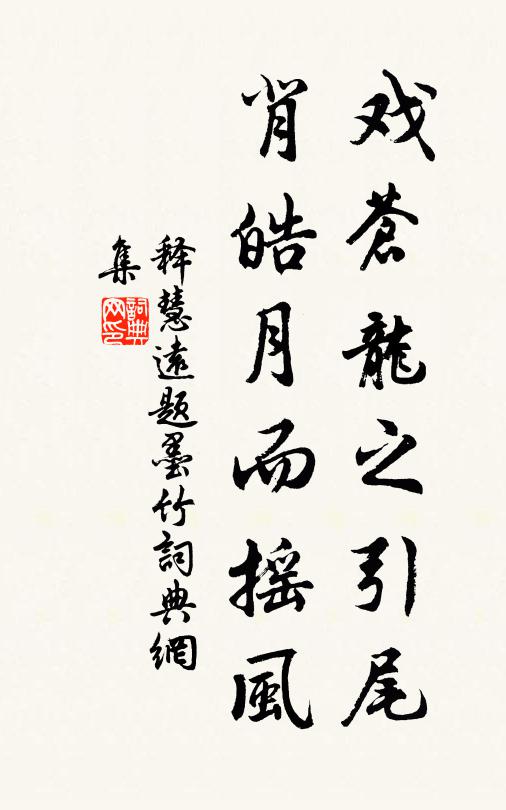 戏蒼龍之引尾
肖皓月而摇風
释慧遠題墨竹詞典網
集
詞典
网印